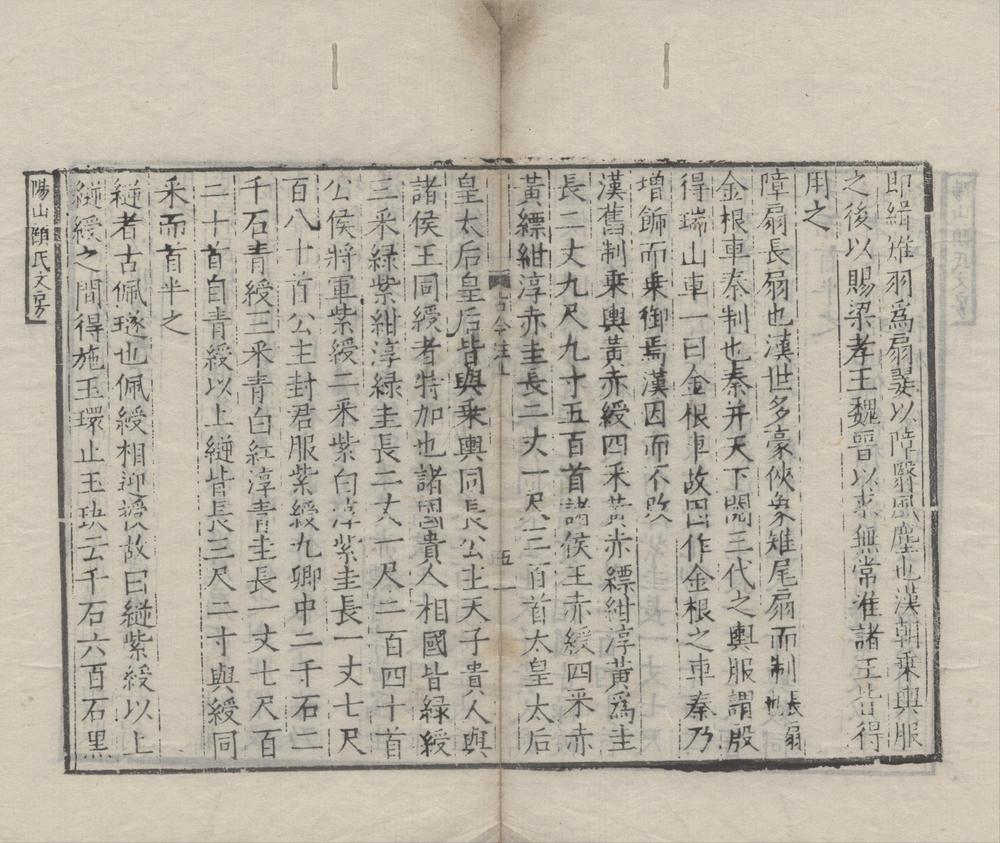 即緝雉羽為扇翣以障翳風塵也漢朝乗輿服
之後以賜梁孝王魏晉以來無常准諸王皆得
用之
障扇長扇也漢世多豪俠象雉尾扇而制長扇也
金根車秦制也秦并天下閱三代之輿服謂殷
得瑞山車一曰金根車故因作金根之車秦乃
増飾而乗御焉漢因而不改
漢舊制乗輿黃赤綬四采黃赤縹紺淳黃為圭
長二丈九尺九寸五百首諸侯王赤綬四采赤
黃縹紺淳赤圭長二丈一尺三百首太皇太后
古今注上
五
皇太后皇后皆與乗輿同長公主天子貴人與
諸侯王同綬者特加也諸國貴人相國皆緑綬
三采緑紫紺淳緑圭長二丈一尺二百四十首
公侯將軍紫綬二采紫白淳紫圭長一丈七尺
百八十首公主封君服紫綬九卿中二千石二
千石青綬三采青白紅淳青圭長一丈七尺百
二十首自青綬以上縌皆長三尺二寸與綬同
采而首半之
縌者古佩璲也佩綬相迎授故曰縌紫綬以上
縌綬之間得施玉環止玉玦云千石六百石黑
陽山顧氏文房